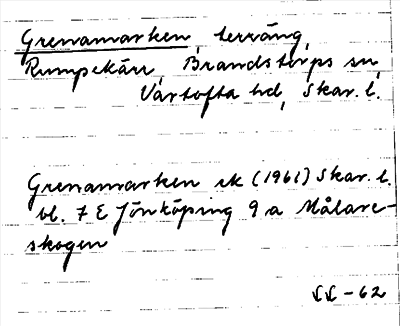 Grenamarken, terräng,
Rumpekärr, Brandstorps sn,
Vartofta hd, Skar. l.
Grenamarken ek (1961) Skar. l.
bl. 7 E Jönköping 9 a Målare-
skogen
-62